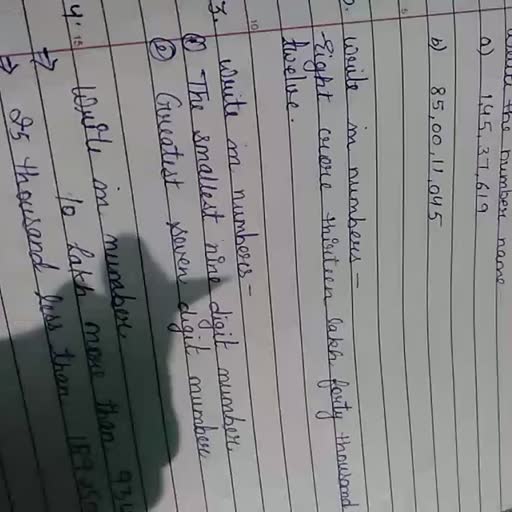 the number name
a) 1,45,37,619
b) 85,00,11,045
write in numbers -
Eight crore thirteen lakh forty thousand
twelve.
3. Write in numbers -
The smallest nine digit number
Greatest seven digit number
4. Write in number
⇒ 10 lakh more than 934
⇒ 25 thousand less than